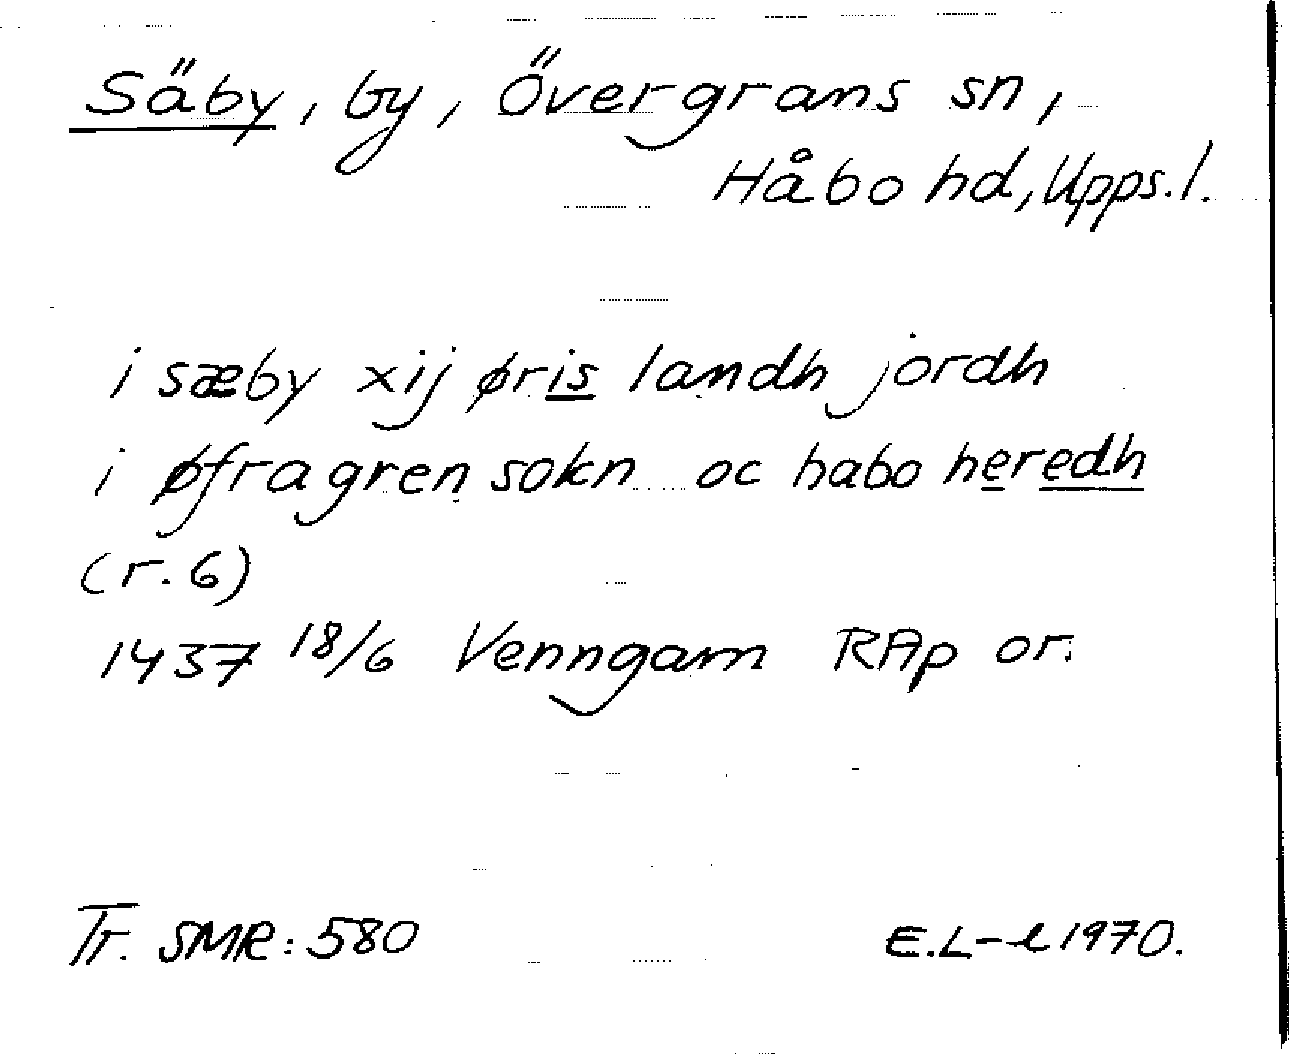 Säby, by, Övergrans sn,
Håbo hd, Upps. l.
i sæby xij øris landh jordh
i øfragren sokn oc habo heredh
(r. 6)
1437 18/6 Venngarn RAp or.
Tr. SMR: 580 E.L-l 1970.